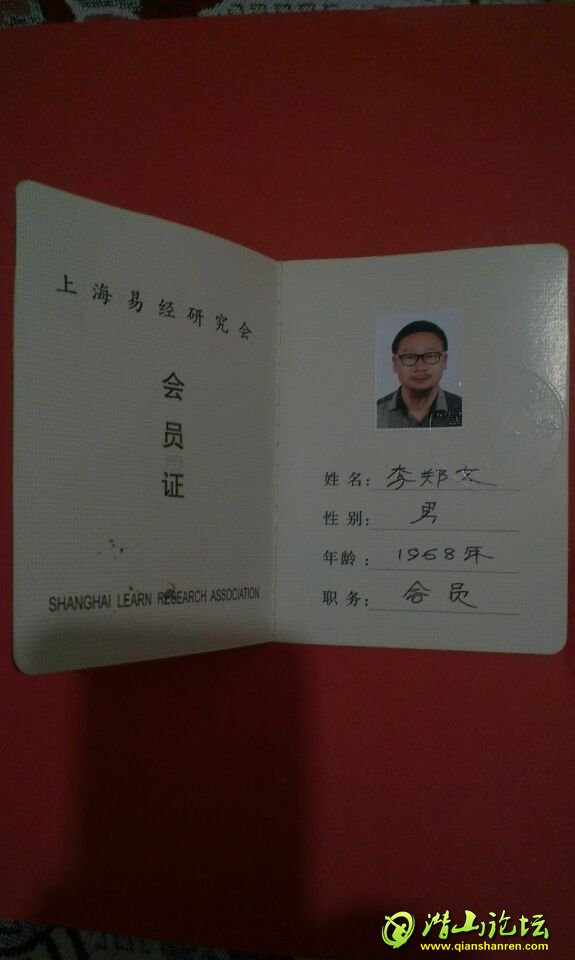 上海易经研究会
会员证
SHANGHAI LEARN RESEARCH ASSOCIATION
姓名：李郑文
性别：男
年龄：1968年
职务：会员
潜山论坛
www.qianshanren.com